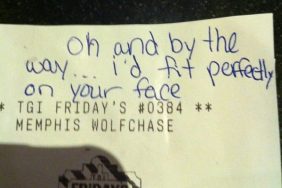 Oh and by the
way... i'd fit perfectly
on your face
* TGI FRIDAY'S #0384 **
MEMPHIS WOLFCHASE
FRIDAYS